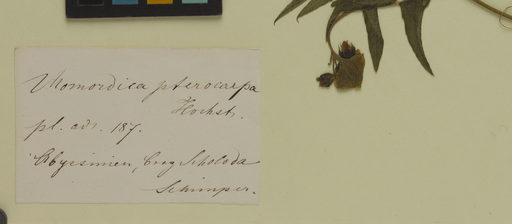 Momordica pterocarpa
Hochst.
pl. adv. 187.
Abyssinien, berg Scholoda
Schimper.